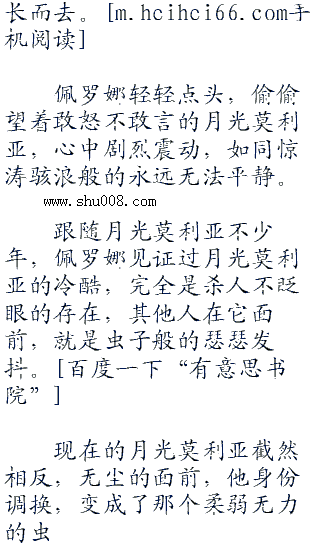 长而去。[m.hcihci66.com手
机阅读]
佩罗娜轻轻点头，偷偷
望着敢怒不敢言的月光莫利
亚，心中剧烈震动，如同惊
涛骇浪般的永远无法平静。
www.shu008.com
跟随月光莫利亚不少
年，佩罗娜见证过月光莫利
亚的冷酷，完全是杀人不眨
眼的存在，其他人在它面
前，就是虫子般的瑟瑟发
抖。[百度一下“有意思书
院”]
现在的月光莫利亚截然
相反，无尘的面前，他身份
调换，变成了那个柔弱无力
的虫